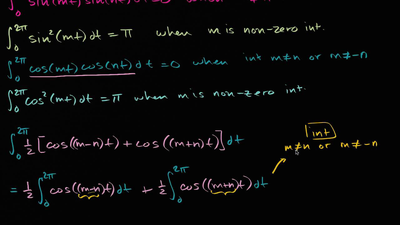 ∫₀^2π sin(mt) sin(nt) dt = 0
∫₀^2π sin²(mt)dt = π when m is non-zero int.
∫₀^2π cos(mt) cos(nt) dt = 0 when int m≠n or m≠-n
∫₀^2π cos²(mt)dt = π when m is non-zero int.
∫₀^2π ½[cos((m-n)t) + cos((m+n)t)]dt
int
m≠n or m≠-n
= ½∫₀^2π cos((m-n)t)dt + ½∫₀^2π cos((m+n)t)dt